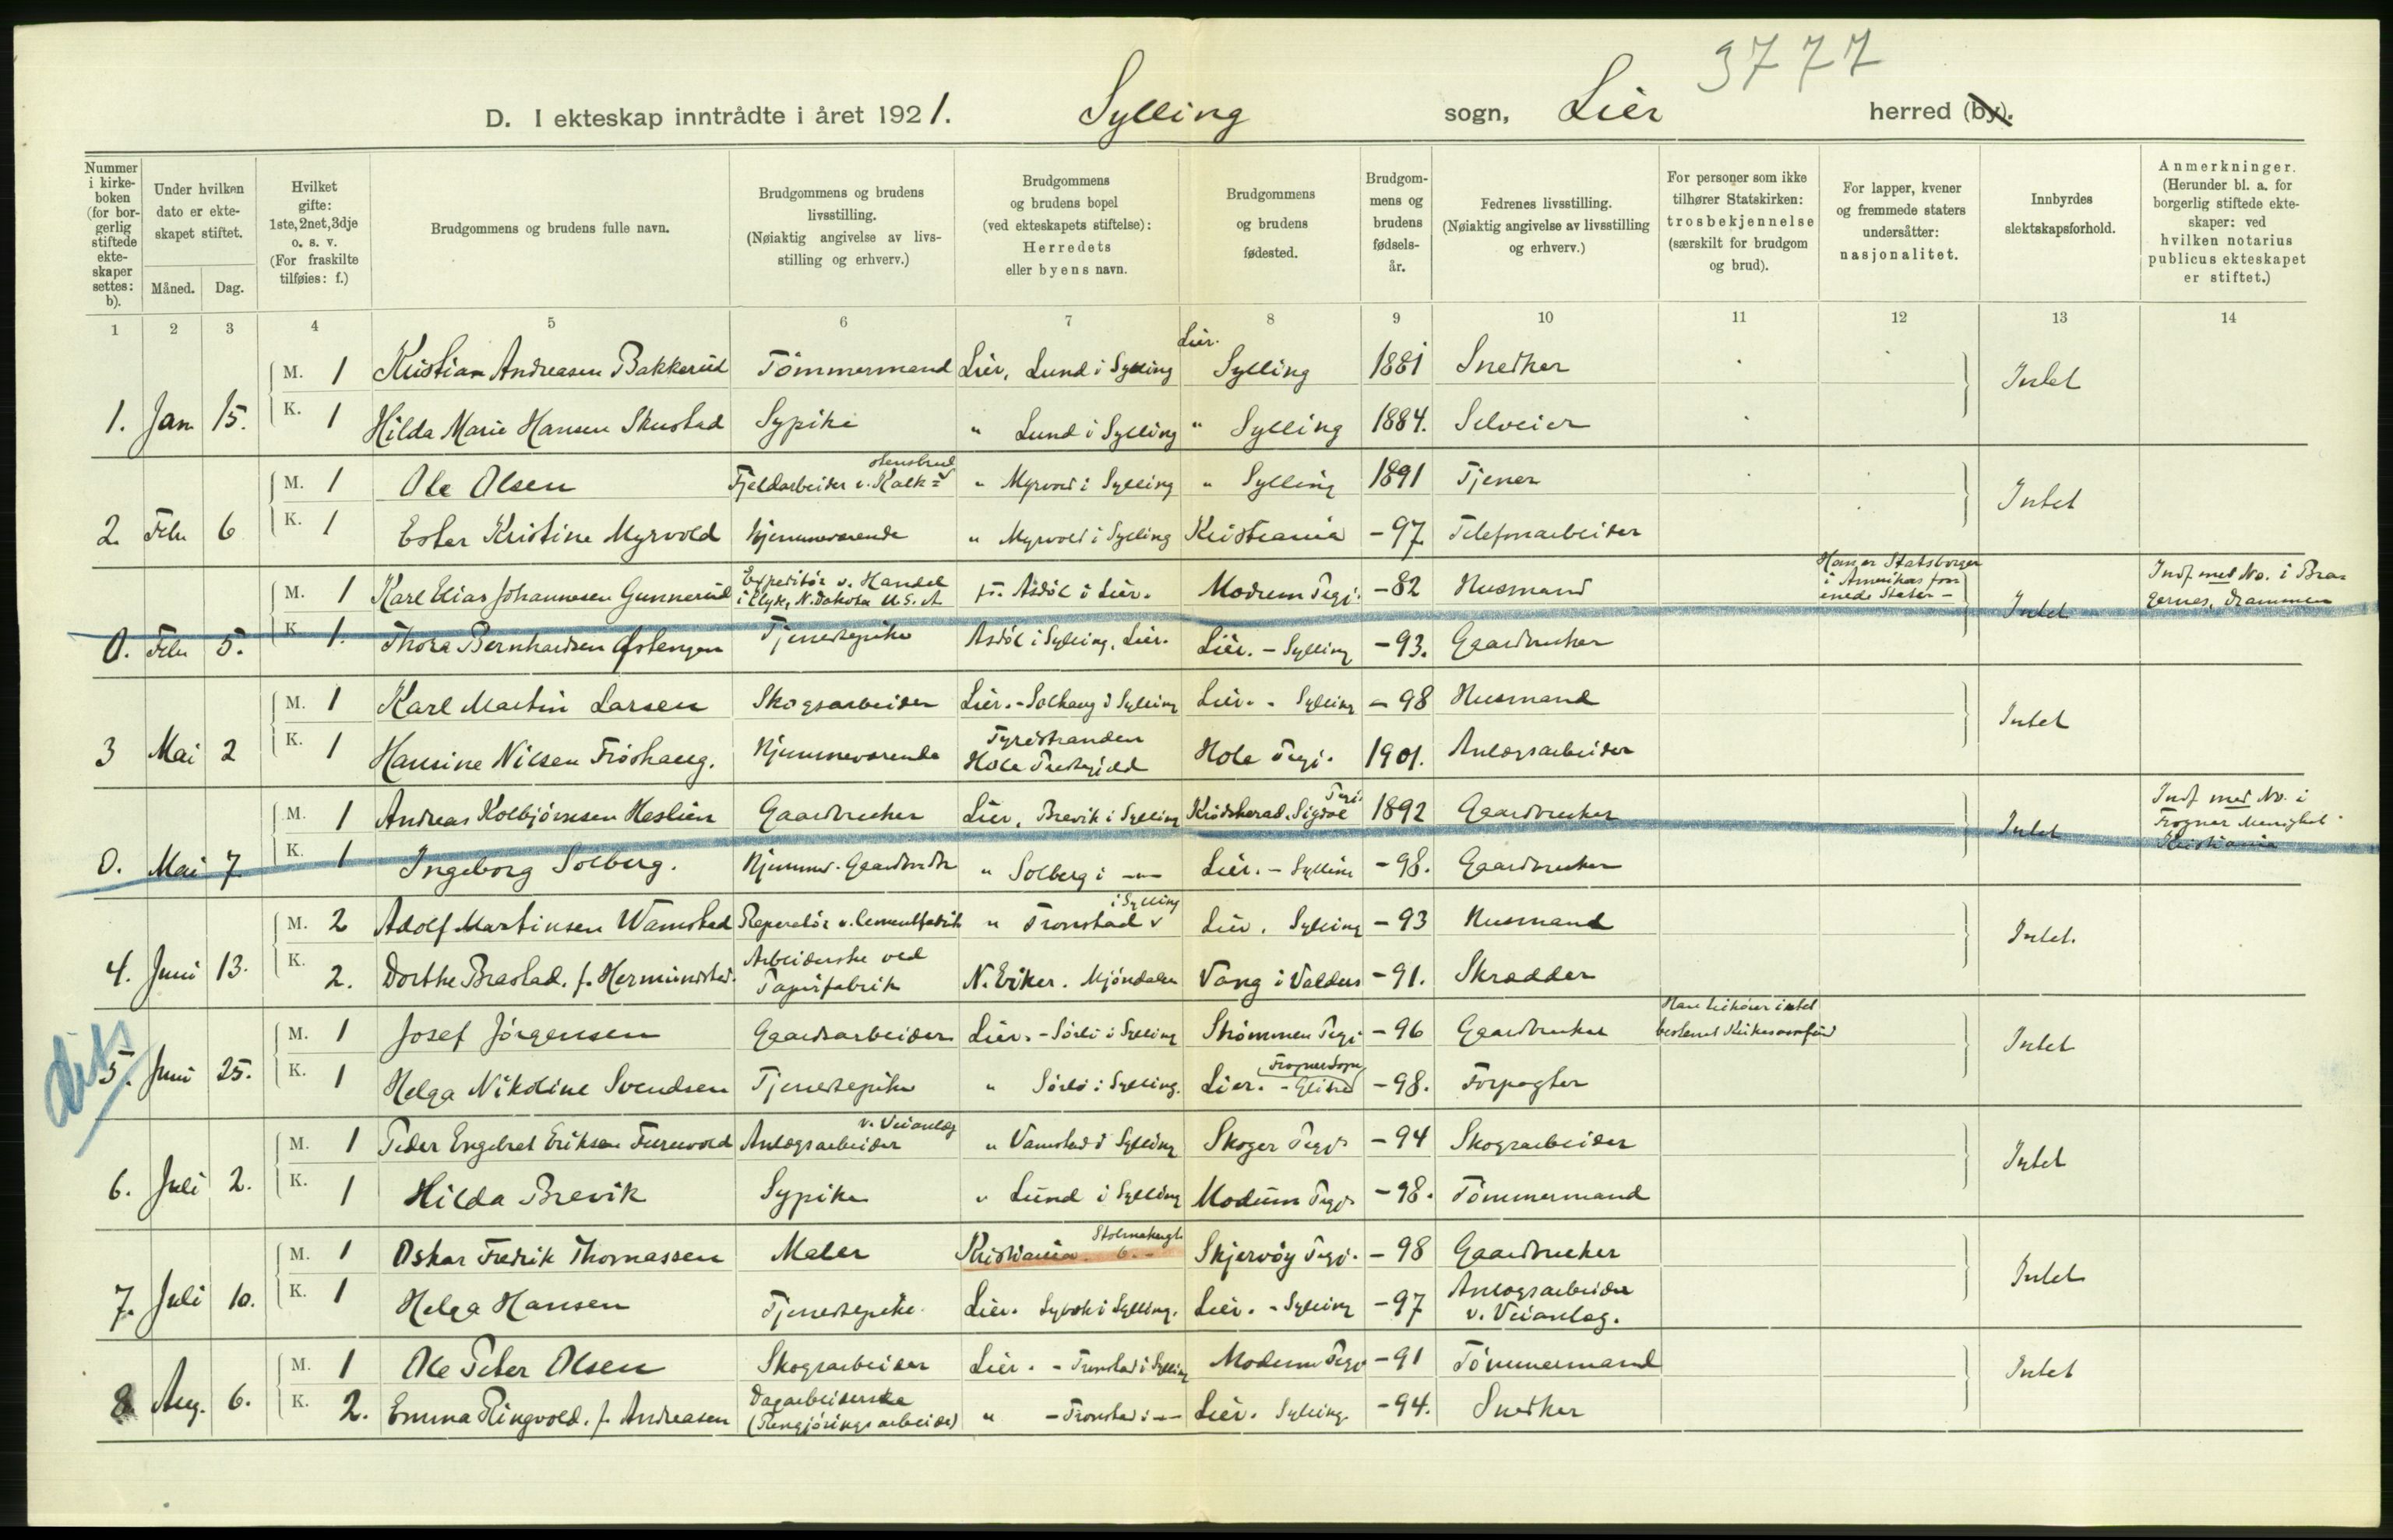 3777
D. I ekteskap inntrådte i året 1921. Sylling sogn, Lier herred (by).
Nummer i kirkeboken (for borgerlig stiftede ekteskaper settes: b).
Under hvilken dato er ekteskapet stiftet.
Måned. Dag.
Hvilket gifte: 1ste, 2net, 3dje o. s. v. (For fraskilte tilføies: f.)
Brudgommens og brudens fulle navn.
Brudgommens og brudens livsstilling. (Nøiaktig angivelse av livsstilling og erhverv.)
Brudgommens og brudens bopel (ved ekteskapets stiftelse): Herredets eller byens navn.
Brudgommens og brudens fødested.
Brudgommens og brudens fødselsår.
Fedrenes livsstilling. (Nøiaktig angivelse av livsstilling og erhverv.)
For personer som ikke tilhører Statskirken: trosbekjennelse (særskilt for brudgom og brud).
For lapper, kvener og fremmede staters undersåtter: nasjonalitet.
Innbyrdes slektskapsforhold.
Anmerkninger. (Herunder bl. a. for borgerlig stiftede ekteskaper: ved hvilken notarius publicus ekteskapet er stiftet.)
1 2 3 4 5 6 7 8 9 10 11 12 13 14
M. 1 Kristian Andreasen Bakkerud Tömmermand Lier, Lund i Sylling Lier. Sylling 1881 Snedker Intet
1. Jan 15. K. 1 Hilda Marie Hansen Skustad Sypike " Lund i Sylling " Sylling 1884. Selveier
M. 1 Ole Olsen Fjeldarbeider v. Kalkstensbrud " Myrvold i Sylling " Sylling 1891 Tjener Intet
2. Febr 6 K. 1 Ester Kristine Myrvold Hjemmeværende " Myrvold i Sylling Kristiania -97 Telefonarbeider
M. 1 Karl Elias Johannesen Gunnerud Expeditör v. Handel i Clyde, N. Dakota U.S.A. Asdöl i Lier. Modum Pegj. -82 Husmand Han er Statsborger i Amerikas forenede Stater - Intet Indf. med No. i Bragernes, Drammen
0. Febr 5. K. 1. Thora Bernhardsen Østengen Tjenestepike Asdöl i Sylling, Lier. Lier. - Sylling -93. Gaardbruker
M. 1 Karl Martin Larsen Skogsarbeider Lier. - Solhaug i Sylling Lier. - Sylling -98 Husmand Intet
3 Mai 2 K. 1 Hansine Nilsen Fröshaug. Hjemmeværende Tyristranden Hole Prestegjeld Hole Pegj. 1901. Anlægsarbeider
M. 1 Andreas Kolbjörnsen Haslien Gaardbruker Lier, Brevik i Sylling Krödsherad, Sigdal Pegj. 1892 Gaardbruker Intet Indf med No. i Frogner Menighet Kristiania
0. Mai 7 K. 1 Ingeborg Solberg. Hjemmev. Gaardbrdt " Solberg i -"- Lier. - Sylling -98. Gaardbruker
M. 2 Adolf Martinsen Wamstad Reperatör v. Cementfabrik " Tronstad i Sylling Lier. Sylling -93 Husmand Intet.
4. Juni 13. K. 2. Dorthe Brastad. f. Hermundstad. Arbeiderske ved Papirfabrik N. Eiker. Mjöndalen Vang i Valders -91. Skrædder
M. 1 Josef Jörgensen Gaardsarbeider Lier. - Sörli i Sylling Strömmen Pegj. -96 Gaardbruker Han tilhörer intet bestemt Kirkesamfund Intet
5. Juni 25. K. 1 Helga Nikoline Svendsen Tjenestepike " Sörli i Sylling. Lier. - Glitre (Frogner Sogn) -98. Forpagter
M. 1 Peder Engebret Eriksen Furuvold Anlægsarbeider v. Veianlæg " Vamstad i Sylling Skoger Pegj. -94 Skogsarbeider Intet
6. Juli 2. K. 1 Hilda Brevik Sypike " Lund i Sylling Modum Pegj. -98. Tömmermand
M. 1 Oskar Fredrik Thomassen Maler Kristiania. Stolmakergt 6. - Skjervöy Pegj. -98 Gaardbruker Intet
7. Juli 10. K. 1 Helga Hansen Tjenestepike. Lier. i Sylling. Lier. - Sylling -97 Anlægsarbeider v. Veianlæg.
M. 1 Ole Peter Olsen Skogsarbeider Lier. - Tronstad i Sylling Modum Pegj. -91 Tömmermand Intet
8 Aug. 6. K. 2. Emma Ringvold. f. Andreasen Dagarbeiderske (Rengjöringsarbeide) " - Tronstad i -"- Lier. Sylling. -94. Snedker